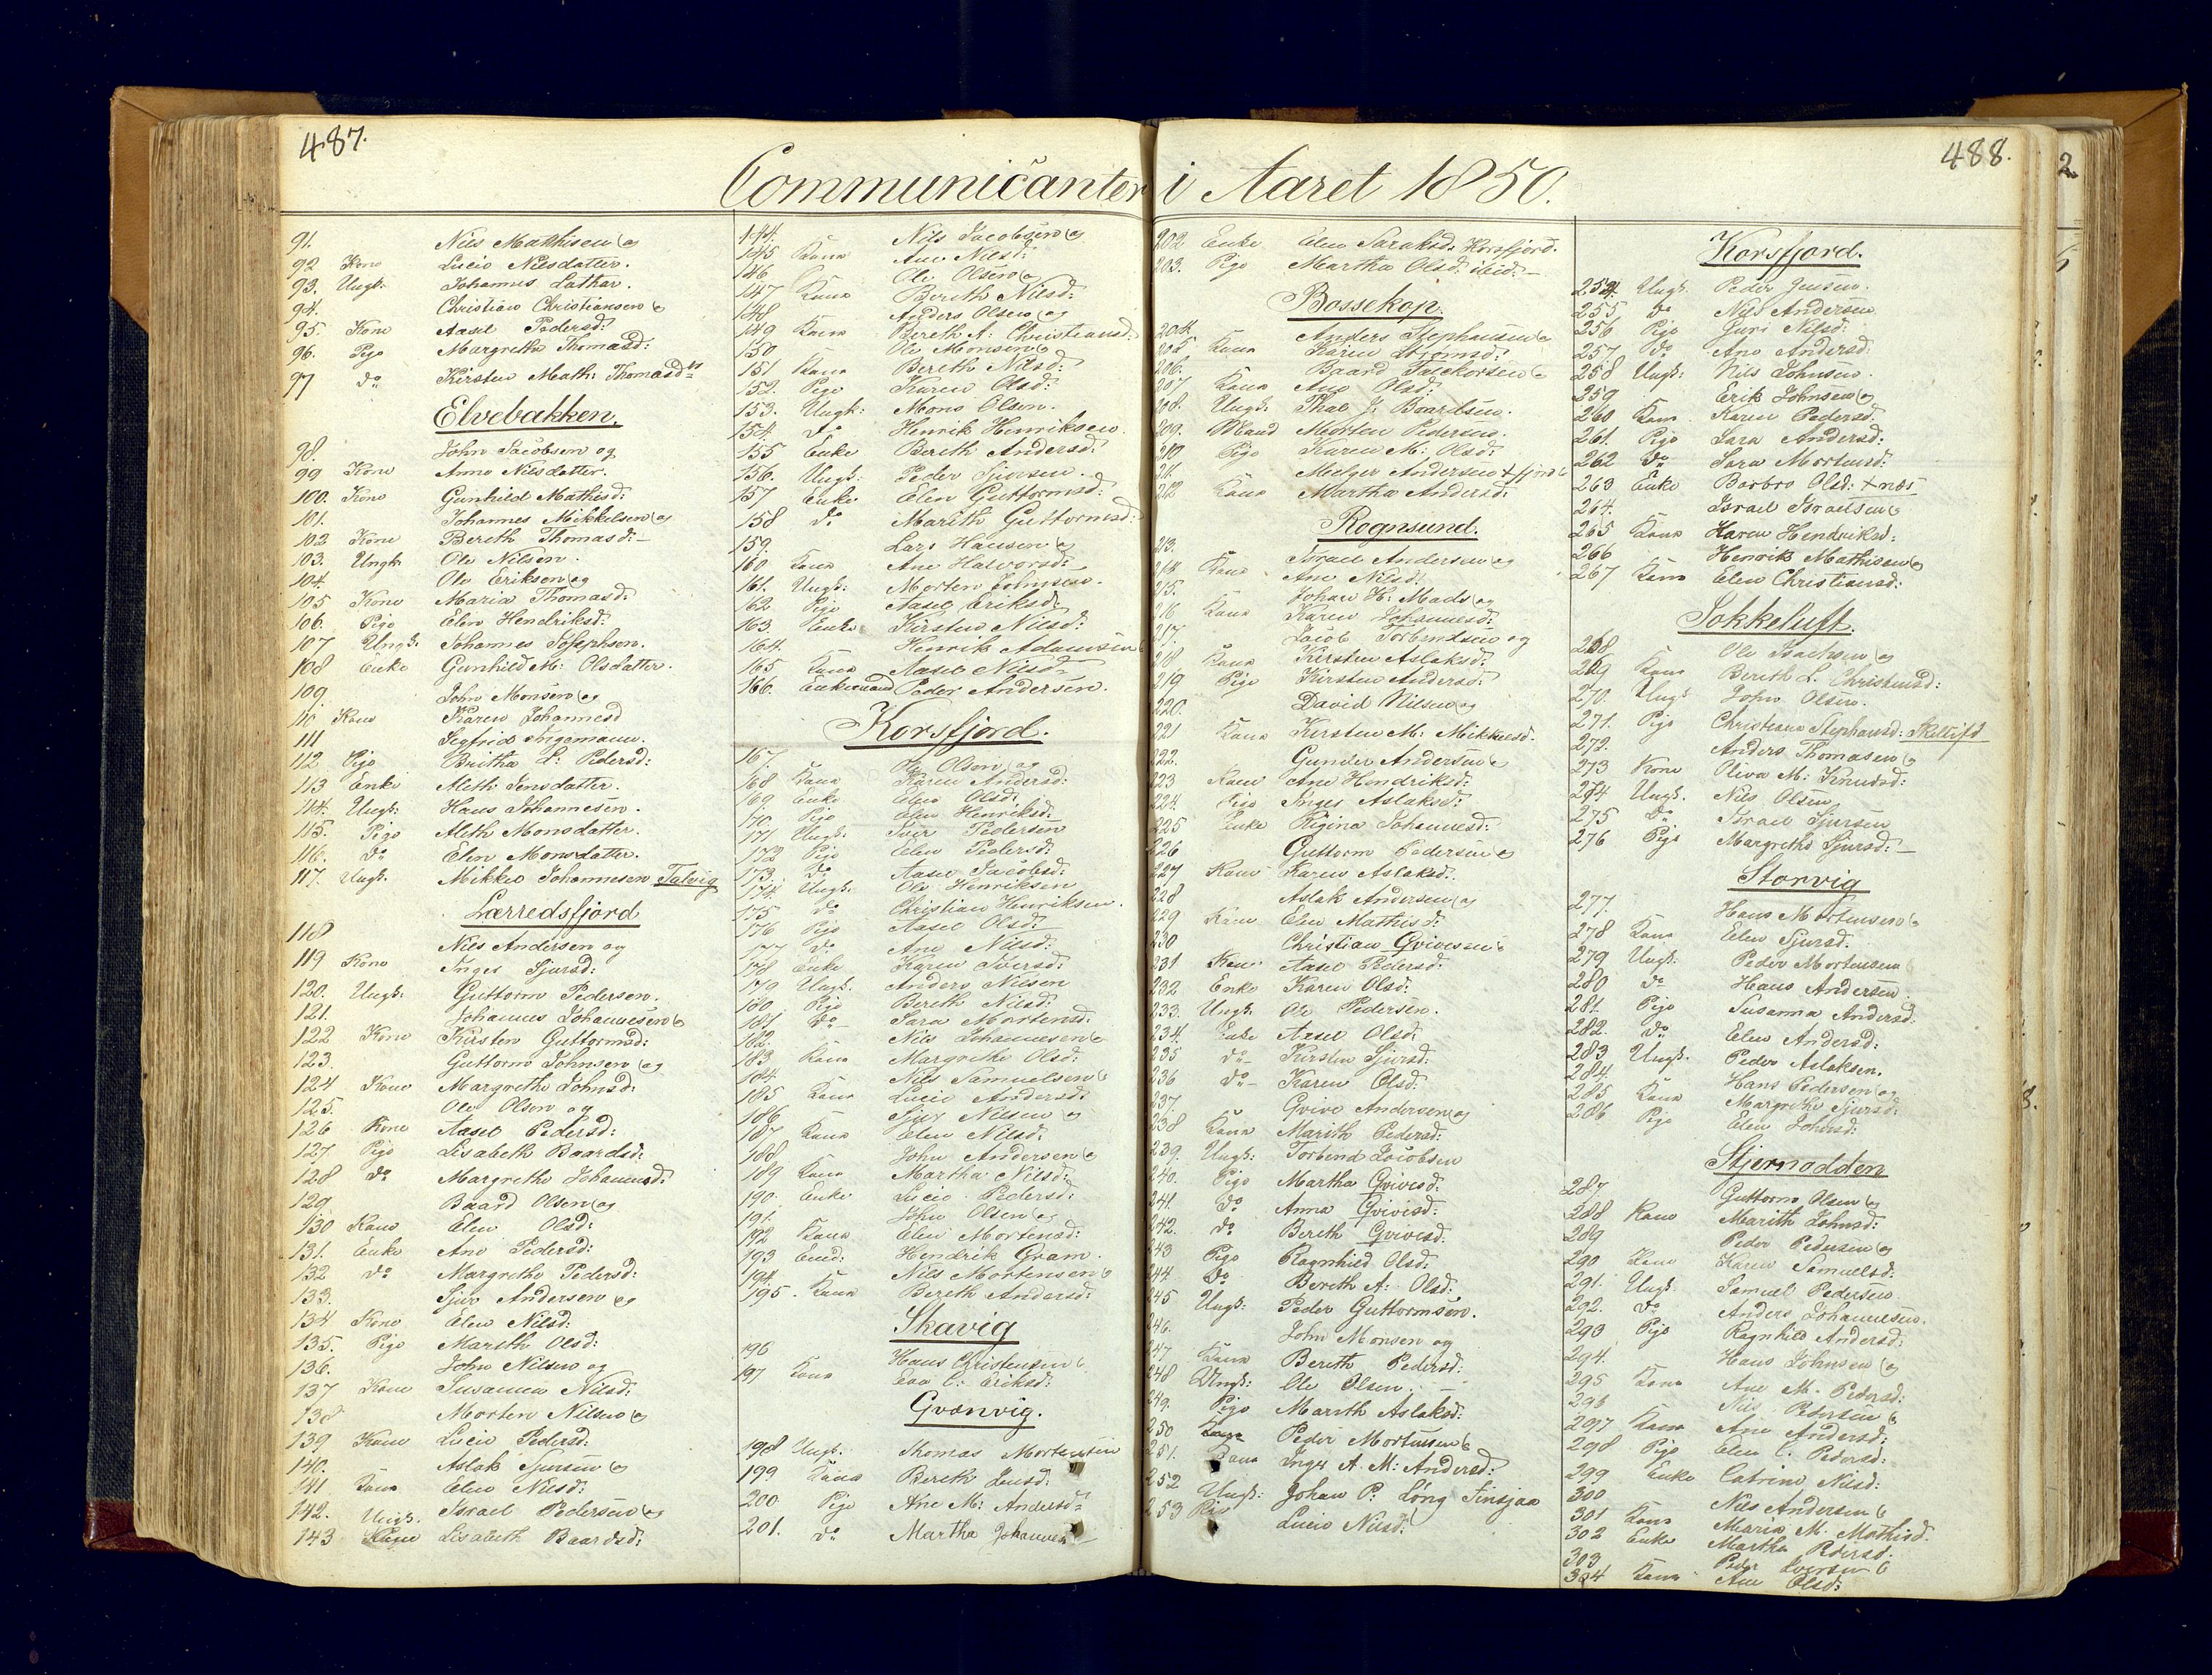 487.
Communicanter i Aaret 1850.
488.
2
91. Nils Mathisen og
92 Kone Lucie Nilsdatter.
93. Ungk: Johannes Lathar.
94. Christian Christiansen og
95. Kone Aasel Pedersd:
96. Pige Margrethe Thomasd:
97 do Kirsten Math: Thomasdtr
Elvebakken.
98. John Jacobsen og
99 Kone Anne Nilsdatter.
100. Kone Gunhild Mathisd:
101. Johannes Mikkelsen og
102 Kone Bereth Thomasd: –
103. Ungk. Ole Nilsen.
104. Ole Eriksen og
105 Kone Maria Thomasd:
106. Pige Elen Hendriksd:
107 Ungk: Johannes Josephsen.
108 Enke Gunhild M: Olsdatter.
109. John Monsen og
110 Kone Karen Johannesd
111 Segfrid Ingemann.
112 Pige Britha L: Pedersd:
113 Enke Aleth Jensdatter.
114. Ungk: Hans Johannesen.
115. Pige Aleth Monsdatter.
116. do Elen Monsdatter.
117. Ungk. Mikkel Johannesen Talvig
Lærredsfjord
118 Nils Andersen og
119 Kone Inger Sjursd:
120. Ungk: Guttorm Pedersen.
121. Johannes Johannesen og
122 Kone Kirsten Guttormsd:
123. Guttorm Johnsen og
124 Kone Margrethe Johnsd:
125. Ole Olsen og
126 Kone Aasel Pedersd:
127 Pige Lisabeth Baardsd:
128 do Margrethe Johannesd:
129 Baard Olsen og
130 Kone Elen Olsd:
131. Enke Ane Pedersd:
132 do Margrethe Pedersd:
133. Sjur Andersen og
134 Kone Elen Nilsd:
135. Pige Marith Olsd:
136. John Nilsen og
137 Kone Susanna Nilsd:
138 Morten Nilsen og
139 Kone Lucie Pedersd:
140. Aslak Sjursen og
141 Kone Elen Nilsd:
142. Ungk. Israel Pedersen og
143 Kone Lisabeth Baardsd:
144. Nils Jacobsen og
145 Kone Ane Nilsd:
146 Ole Olsen og
147 Kone Bereth Nilsd:
148 Anders Olsen og
149 Kone Bereth A: Christiansd:
150 Ole Monsen og
151 Kone Bereth Nilsd:
152. Pige Karen Olsd:
153. Ungk: Mons Olsen.
154. do Henrik Henriksen.
155 Enke Bereth Andersd:
156. Ungk: Peder Sjursen.
157 Enke Elen Guttormsd:
158 do Marith Guttormsd:
159. Lars Hansen og
160 Kone Ane Halvorsd:
161. Ungk: Morten Johnsen.
162 Pige Aasel Eriksd:
163. Enke Kirsten Nilsd:
164. Henrik Adamsen
165 Kone Aasel Nilsd
166. Enkemand Peder Andersen.
Korsfjord.
167. Ole Olsen og
168 Kone Karen Andersd:
169. Enke Elen Olsd:
170. Pige Elen Henriksd:
171. Ungk: Iver Pedersen
172 Pige Elen Pedersd:
173. do Aasel Jacobsd:
174. Ungk: Ole Henriksen
175 do Christian Henriksen.
176 Pige Aasel Olsd:
177 do Ane Nilsd:
178 Enke Karen Iversd:
179 Ungk: Anders Nilsen
180 Pige Bereth Nilsd:
181 do Sara Mortensd:
182. Nils Johannesen og
183 Kone Margrethe Olsd:
184. Nils Samuelsen og
185 Kone Lucie Andersd:
186 Sjur Nilsen og
187 Kone Elen Nilsd:
188. John Andersen og
189 Kone Martha Nilsd:
190. Enke Lucie Pedersd:
191. John Olsen og
192 Kone Elen Mortensd:
193 Enk: Hendrik Gram.
194. Nils Mortensen og
195. Kone Bereth Andersd:
Skavig
196 Hans Christensen
197 Kone Eva C: Eriksd:
Gvænvig.
198 Ungk: Thomas Mortensen
199 Kone Bereth Jensd:
200 Pige Ane M: Andersd:
201. do Martha Johannes
202 Enke Elen Saraksd: Korsfjord.
203. Pige Martha Olsd: ibid: –
Bossekop.
204. Anders Stephansen og
205 Kone Karen
206. Baard
207 Kone Ane Olsd:
208. Ungk: Thal J. Baardsen.
209. Mand Morten Pedersen.
210 Pige Karen M: Olsd:
211. Melger Andersen
212 Kone Martha Andersd:
Rognsund.
213. Israel Andersen og
214 Kone Ane Nilsd:
215. Johan H: Mads og
216 Kone Karen Johannesd:
217. Jacob Torbendsen og
218 Kone Kirsten Aslaksd:
219 Pige Kirsten Andersd:
220. David Nilsen og
221 Kone Kirsten M: Mikkelsd.
222. Gunder Andersen og
223 Kone Ane Hendriksd:
224. Pige Inger Aslaksd:
225 Enke Rigina Johannesd:
226 Guttorm Pedersen og
227 Kone Karen Aslaksd:
228 Aslak Andersen og
229 Kone Elen Mathisd:
230 Christian Gvivesen
231 Kone Aasel Pedersd:
232 Enke Karen Olsd:
233. Ungk: Ole Pedersen.
234. Enke Aasel Olsd:
235 do – Kirsten Sjursd:
236 do – Karen Olsd:
237. Gvive Andersen og
238 Kone Marith Pedersd:
239. Ungk: Torbend Jacobsen
240. Pige Martha Gvivesd:
241. do Anna Gvivisd:
242. do Bereth Gvivesd:
243 Pige Ragnhild Olsd:
244 do Bereth A: Olsd:
245 Ungk: Peder Guttormsen.
246. John Monsen og
247 Kone Bereth Pedersd:
248 Ungk: Ole Olsen. –
249. Pige Marith Aslaksd:
250 Peder Mortensen
251. Kone Inger A. M: Andersd:
252 Ungk: Johan P: Long Finsjaa
253 Pige Lucie Nilsd:
Korsfjord.
254 Ungk. Peder Jensen.
255 do Nils Andersen
256 Pige Guri Nilsd:
257. do Ane Andersd:
258 Ungk: Nils Johnsen.
259 Erik Johnsen og
260 Kone Karen Pedersd:
261. Pige Sara Andersd:
262 do Sara Mortensd:
263 Enke Barbro Olsd:
264. Israel Israelsen
265 Kone Karen Hendriksd:
266 Henrik Mathisen og
267 Kone Elen Christiansd:
Sokkeluft.
268 Ole Isachsen og
269 Kone Bereth L. Christensd:
270. Ungk John Olsen.
271. Pige Christiane Stephansd:
272. Anders Thomasen
273 Kone Oliva M: Knudsd:
274 Ungk. Nils Olsen
275 do Israel Sjursen
276 Pige Margrethe Sjursd: –
Storvig
277. Hans Mortensen
278 Kone Elen Sjursd:
279 Ungk: Peder Mortensen
280 do Hans Andersen
281 Pige Susanna Andersd.
282. do Elen Andersd:
283 Ungk. Peder Aslaksen.
284. Hans Pedersen og
285 Kone Margrethe Sjursd:
286 Pige Elen Johnsd:
Stjernodden
287 Guttorm Olsen og
288 Kone Marith Johnsd:
289 Peder Pedersen og
290 Kone Karen Samuelsd:
291. Ungk: Samuel Pedersen
292. do Anders Johannesen.
293 Pige Ragnhild Andersd:
294. Hans Johnsen og
295 Kone Ane M. Pedersd:
296 Nils Pedersen
297 Kone Ane Andersd:
298 Pige Elen C. Pedersd:
299 Enke Catrine Nilsd:
300 Nils Andersen
301 Kone Maria M. Mathisd.
302 Enke Martha Pedersd:
303 Peder Iversen
304 Kone Ane Olsd: